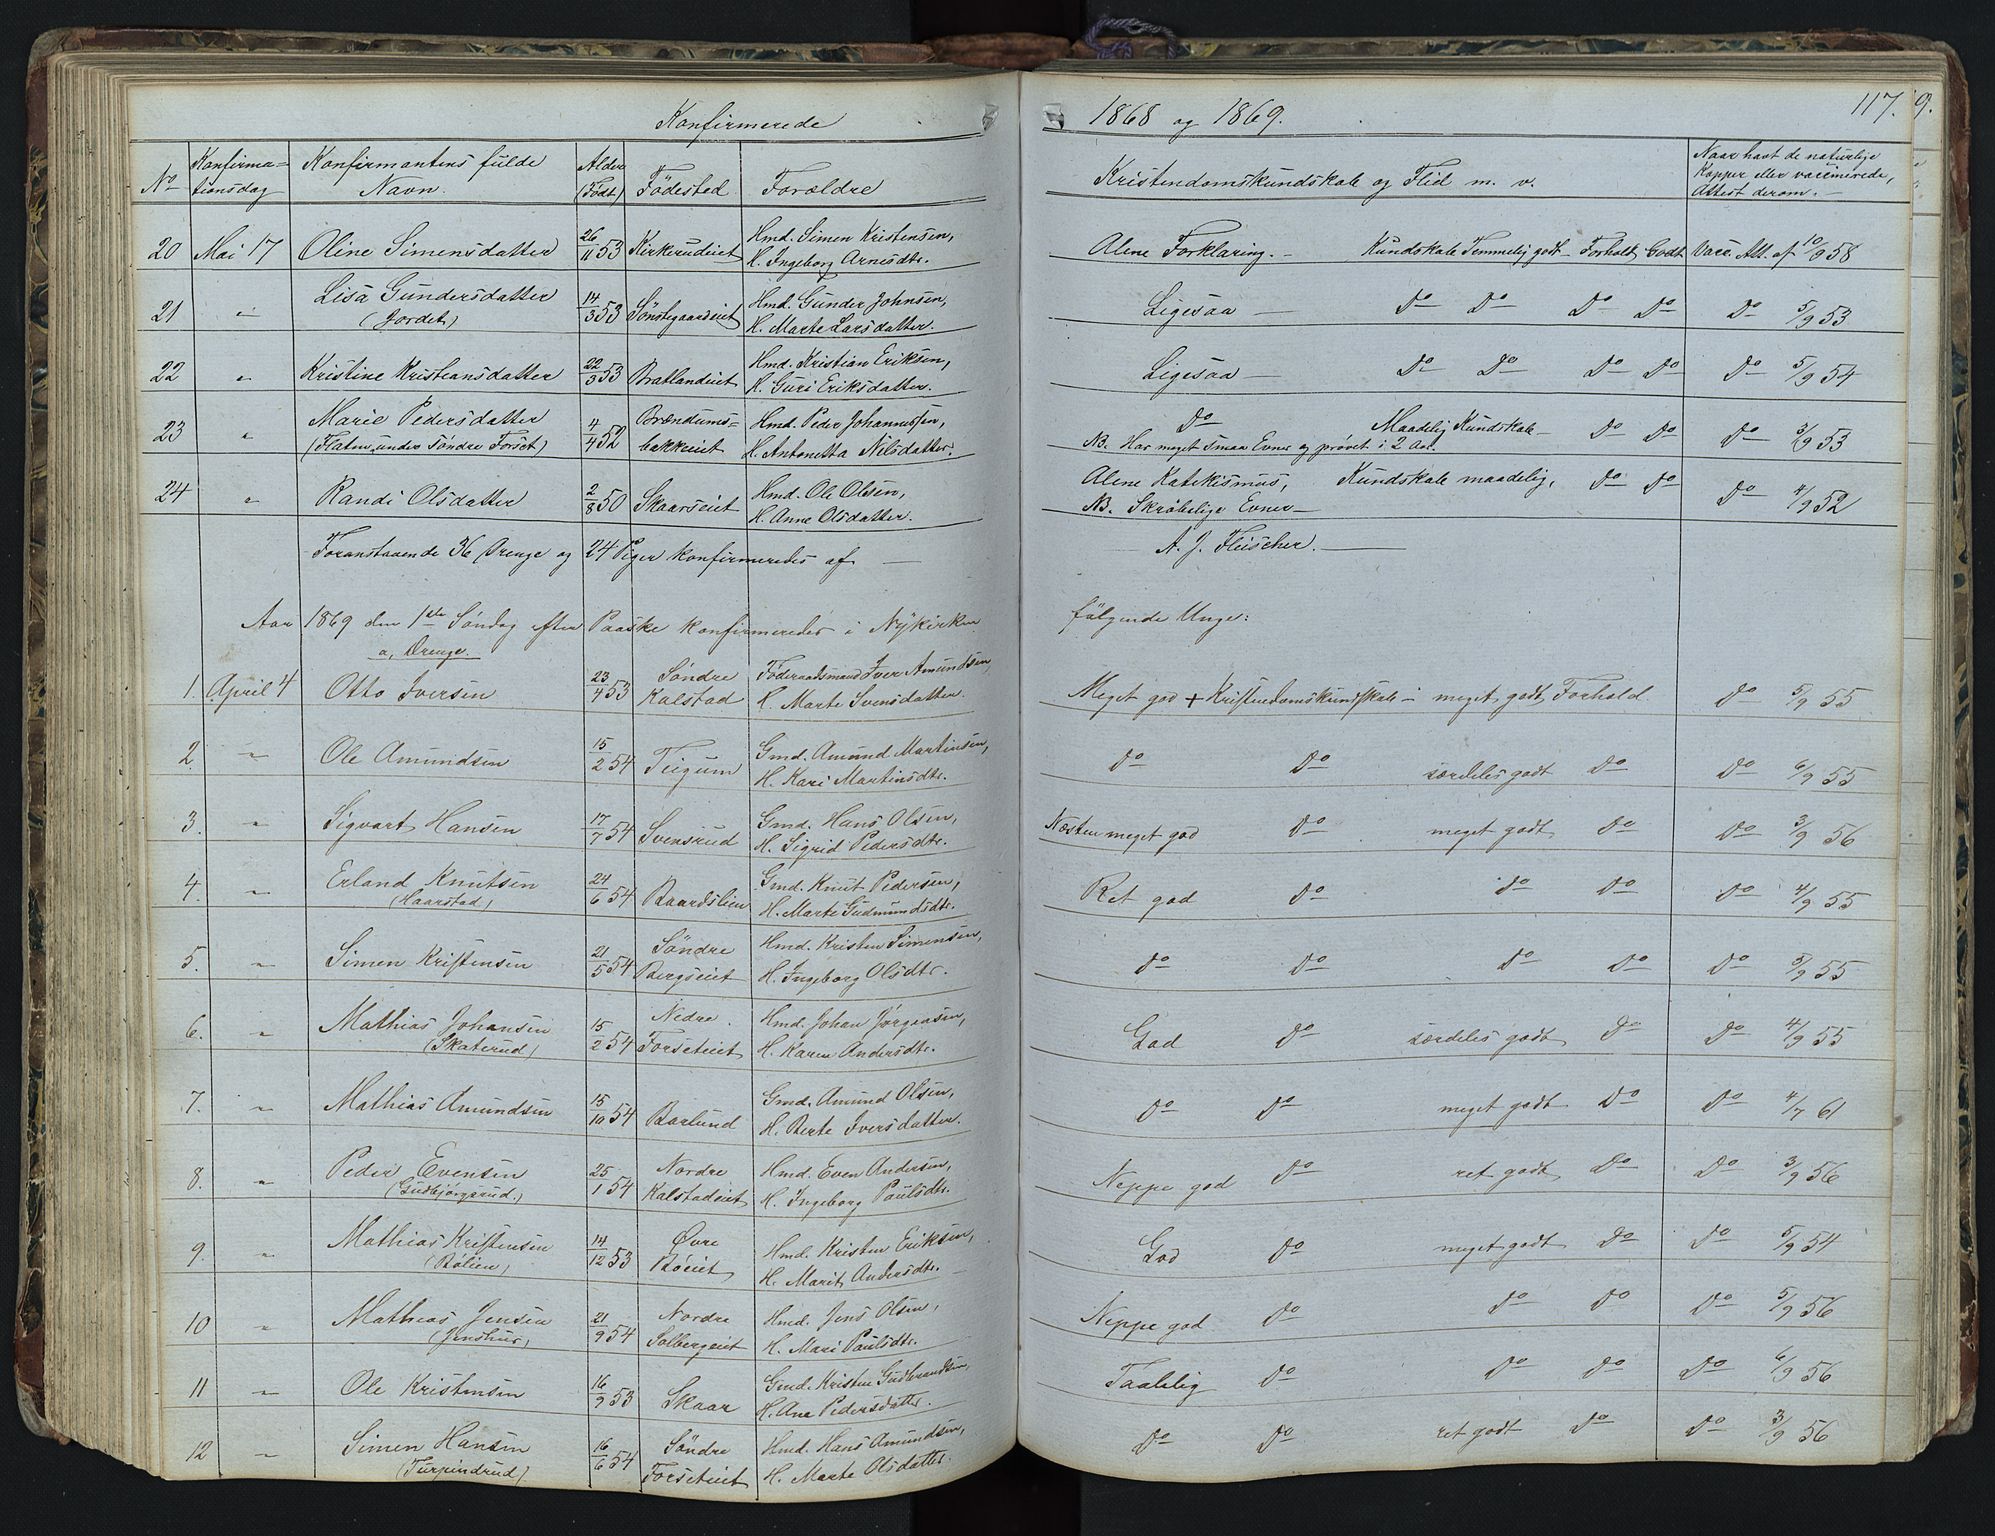 Konfirmerede 1868 og 1869. 117.
No Konfirmationsdag Konfirmantens fulde Navn. Alder (Födt) Födested Forældre Kristendomskundskab og Flid m. v. Naar havt de naturlige Kopper eller vaccinerede, Attest derom.
20 Mai 17 Oline Simensdatter 26/11 53 Kirkerudeiet Hmd. Simen Kristensen,
H. Ingeborg Arnesdtr. Alene Forklaring. – Kundskab Temmelig godt – Forhold Godt Vacc. Att. af 10/9 58
21 " Lisa Gundersdatter 14/3 53 Sönstegaardeiet Hmd. Gunder Johnsen,
(Jordet) H. Marte Larsdatter. Ligesaa — Do Do Do Do Do 5/9 53
22 " Kristine Kristiansdatter 22/3 53 Bratlandeiet Hmd. Kristian Eriksen,
H. Guri Eriksdatter. Ligesaa — Do Do Do Do Do 5/9 54
23 " Marie Pedersdatter 4/4 52 Brændums= Hmd. Peder Johannessen, Do Maadelig Kundskab – Do Do Do 3/9 53
(Flaten under Söndre Forset) bakkeiet H. Antonetta Nilsdatter. NB. Har meget smaa Evner og prövet i 2 Aar.
24 " Randi Olsdatter 2/8 50 Skaarseiet Hmd. Ole Olsen, Alene Katekismus, Kundskab maadelig, Do Do Do 4/9 52
H. Anne Olsdatter. NB. Skröbelige Evner —
Foranstaaende 36 Drenge og 24 Piger konfirmeredes af — A. J. Fleischer. —
Aar 1869 den 1ste Söndag efter Paaske konfirmeredes i Nykirken følgende Unge:
a, Drenge.
1. April 4 Otto Iversen 23/4 53 Söndre Kalstad Föderaadsmand Iver Amundsen,
H. Marte Svensdatter. Meget god + Kristendomskundskab – meget godt Forhold Do 5/9 55
2. " Ole Amundsen 15/2 54 Tiigum Gmd. Amund Martinsen,
H. Kari Martinsdtr. Do Do særdeles godt Do Do 6/9 55
3. " Sigvart Hansen 17/7 54 Svensrud Gmd. Hans Olsen,
H. Sigrid Pedersdtr. Næsten meget god Do meget godt Do Do 3/9 56
4. " Erland Knutsen 24/6 54 Baardslien Gmd. Knut Pedersen,
(Haarstad) H. Marte Gudmundsdtr. Ret god Do Do Do Do 4/9 55
5. " Simen Kristensen 21/5 54 Söndre Bergseiet Hmd. Kristen Simensen,
H. Ingeborg Olsdtr. Do Do Do Do Do 5/9 55
6. " Mathias Johansen 15/2 54 Nedre Forseteiet Hmd. Johan Jörgensen,
(Skaterud) H. Karen Andersdtr. God Do særdeles godt Do Do 4/9 55
7. " Mathias Amundsen 15/10 54 Baarlund Gmd. Amund Olsen,
H. Berte Iversdatter. Do Do meget godt Do Do 4/7 61
8. " Peder Evensen 25/1 54 Nordre Kalstadeiet Hmd. Even Andersen,
(Gudbjörgsrud.) H. Ingeborg Paulsdtr. Neppe god Do ret godt Do Do 3/9 56
9. " Mathias Kristensen 14/12 53 Øvre Böeiet Hmd. Kristen Eriksen,
(Bölien) H. Marit Andersdtr. God Do meget godt Do Do 5/9 54
10 " Mathias Jensen 21/9 54 Nordre Solbergeiet Hmd. Jens Olsen,
(Jenshus) H. Mari Paulsdtr. Neppe god Do Do Do Do 5/9 56
11 " Ole Kristensen 16/9 53 Skaar Gmd. Kristen Gudbrandsen,
H. Ane Pedersdatter. Taalelig Do Do Do Do 6/9 56
12 " Simen Hansen 16/6 54 Söndre Forseteiet Hmd. Hans Amundsen,
(Turpindrud) H. Marte Olsdatter. Do Do ret godt Do Do 3/9 56